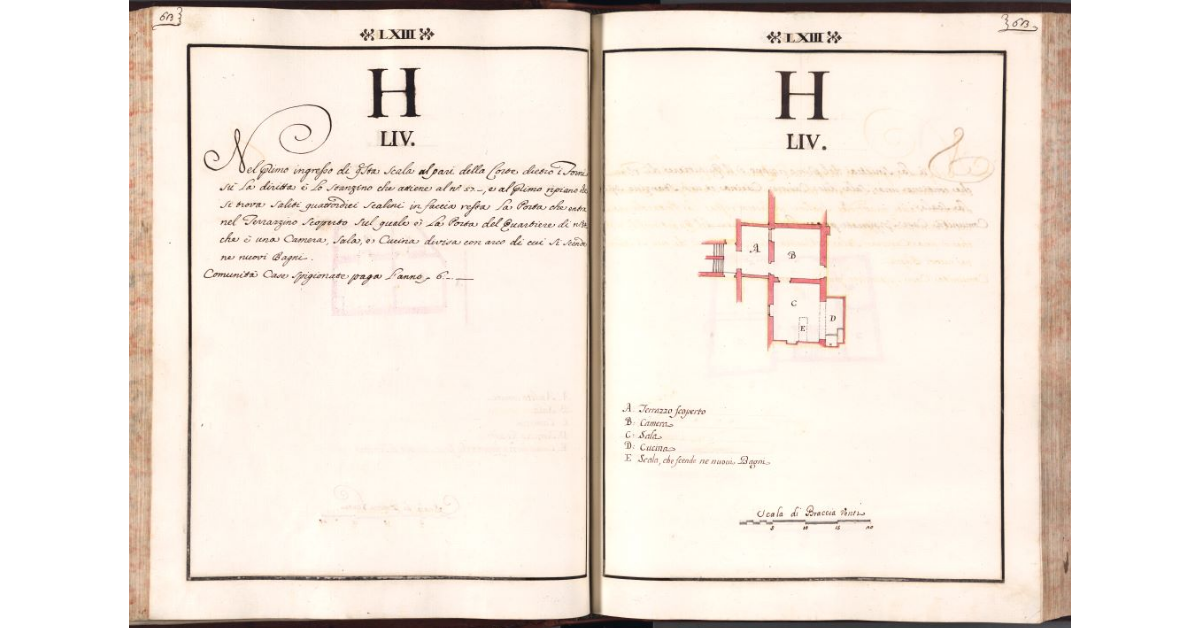 63
LXIII
H
LIV.
Nel Primo ingresso di qsta scala al pari della Corte dietro i Forni
sù la diritta è lo stanzino che attiene al n° 57, e al Primo ripiano che
si trova saliti quattordici scalini in faccia resta la Porta che entra
nel Terrazzino scoperto sul quale è la Porta del Quartiere di n°
che è una Camera, Sala, e Cucina divisa con arco di cui si scende
ne nuovi Bagni.
Comunità Case spigionate paga l'anno 6.
63
LXIII
H
LIV.
A
B
C
D
E
A Terrazzo scoperto
B: Camera
C: Sala
D: Cucina
E Scala, che scende ne nuovi Bagni
Scala di Braccia Venti
5 10 15 20